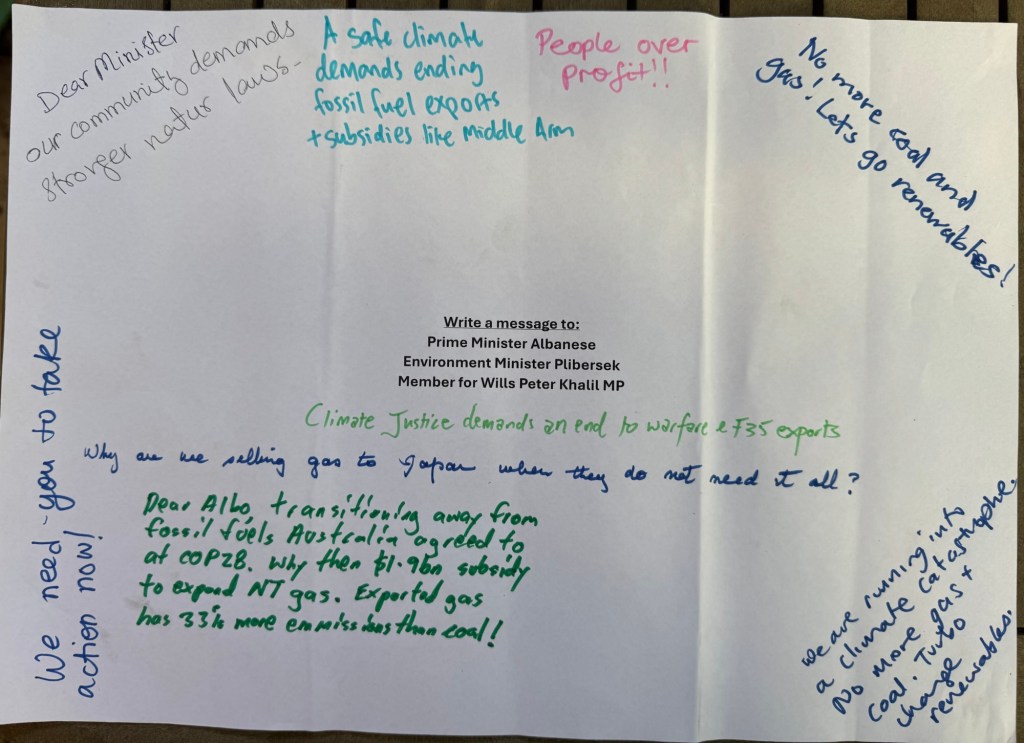 Dear Minister
our community demands
stronger natur laws-
A safe climate
demands ending
fossil fuel exports
+ subsidies like Middle Arm
People over
profit!!
No more coal and
gas! Lets go renewables!
Write a message to:
Prime Minister Albanese
Environment Minister Plibersek
Member for Wills Peter Khalil MP
Climate Justice demands an end to warfare & F35 exports
Why are we selling gas to Japan when they do not need it all?
Dear Albo, transitioning away from
fossil fuels Australia agreed to
at COP28. Why then $1.9bn subsidy
to expand NT gas. Exported gas
has 33% more emmissions than coal!
We need you to take
action now!
We are running into
a climate catastrophe.
No more gas +
coal. Turbo
change
renewables.